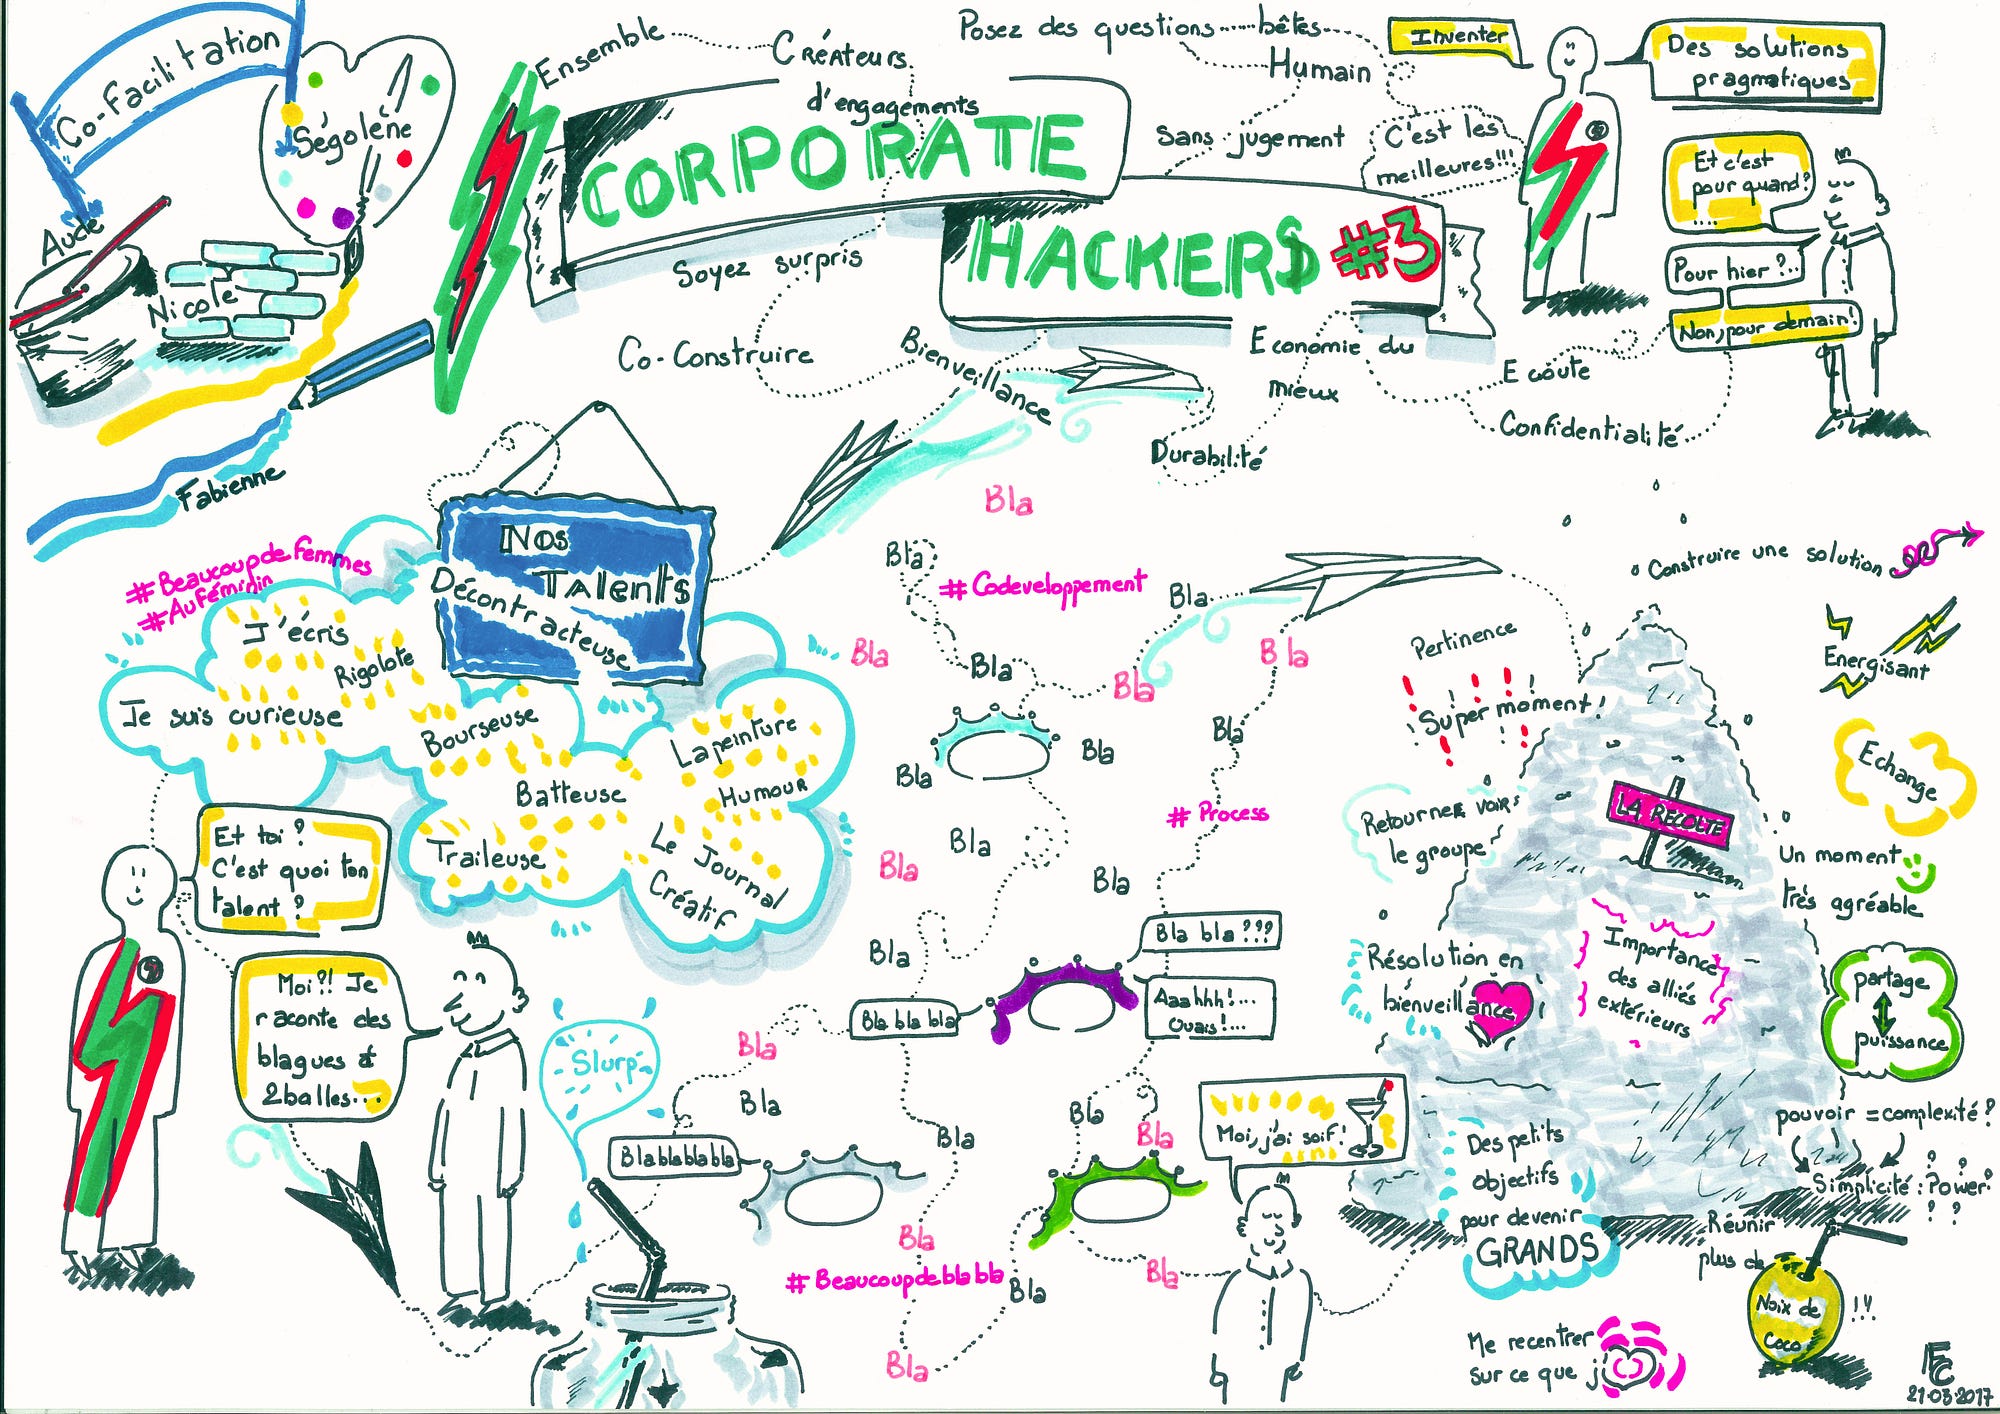 Co-Facilitation
Ségolène
Aude
Nicole
Fabienne
Ensemble
Créateurs
d'engagements
Posez des questions bêtes
Humain
Sans jugement
C'est les
meilleures!!!
Inventer
Des solutions
pragmatiques
CORPORATE
HACKERS #3
Et c'est
pour quand?
....
Pour hier?..
Non, pour demain!
Soyez surpris
Co-Construire
Bienveillance
Economie du
mieux
Durabilité
Ecoute
Confidentialité
Nos
Talents
Décontracteuse
#Beaucoupdefemmes
#AuFéminin
J'écris
Rigolote
Je suis curieuse
Bourseuse
Batteuse
Traileuse
La peinture
Humour
Le Journal
Créatif
Et toi?
C'est quoi ton
talent?
Moi?! Je
raconte des
blagues à
2 balles...
Slurp
Bla
Bla
#Codeveloppement
Bla
Bla
Bla
Bla
Bla
Bla
Bla
Bla
#Process
Bla
Bla
Bla
Bla
Bla bla ???
Bla bla bla
Aaahhh!...
Ouais!...
Bla
Bla
Bla
Bla
Bla
Blablablabla
Bla
#Beaucoupdeblabla
Bla
Bla
Bla
Moi, j'ai soif!
Construire une solution
Pertinence
Super moment!
Energisant
Echange
LA RÉCOLTE
Retourner voir
le groupe
Un moment
très agréable
Résolution en
bienveillance
Importance
des alliés
extérieurs
partage
puissance
pouvoir = complexité?
Simplicité: Power?
Des petits
objectifs
pour devenir
GRANDS
Réunir
plus de
Noix de
Coco
!!!
Me recentrer
sur ce que j'
FC
21.03.2017